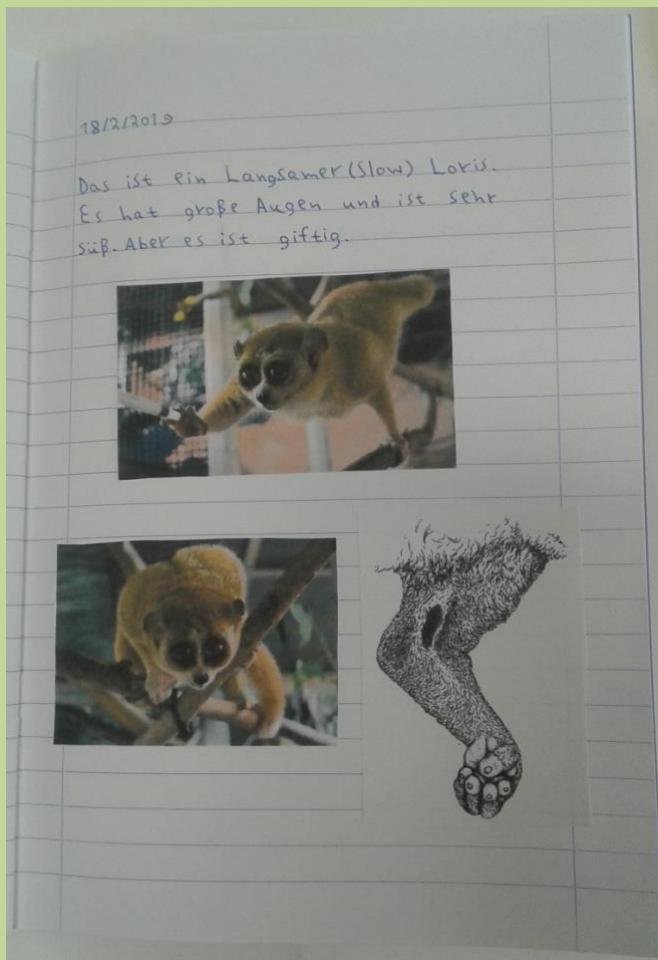 18/2/2019
Das ist ein Langsamer (Slow) Loris.
Es hat große Augen und ist sehr
süß. Aber es ist giftig.